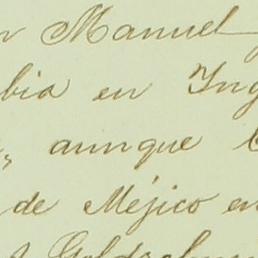 n Manuel
bia en Ing
aunque
de Méjico en